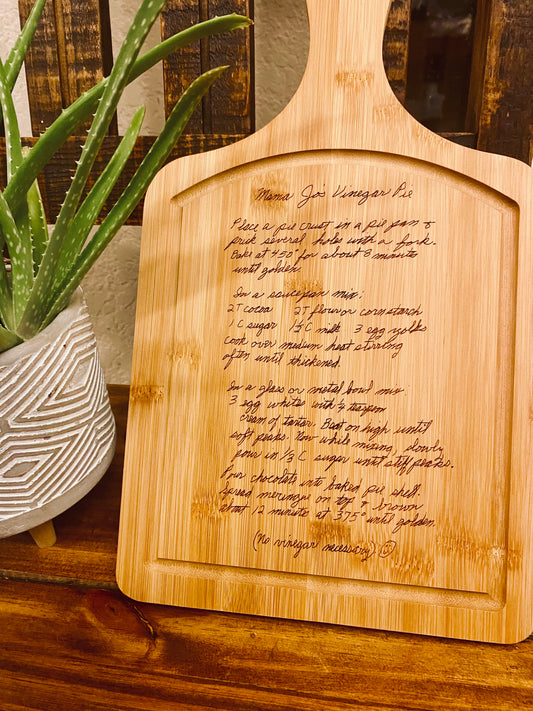 Mama Jo's Vinegar Pie
Place a pie crust in a pie pan &
prick several holes with a fork.
Bake at 450° for about 8 minutes
until golden.
In a saucepan mix:
2T cocoa 2T flour or cornstarch
1 C sugar 1½ C milk 3 egg yolks
Cook over medium heat stirring
often until thickened.
In a glass or metal bowl mix:
3 egg whites with ¼ teaspoon
cream of tartar. Beat on high until
soft peaks. Now while mixing slowly
pour in ⅓ C sugar until stiff peaks.
Pour chocolate into baked pie shell.
Spread meringue on top & brown
about 12 minutes at 375° until golden.
(No vinegar necessary) ☺